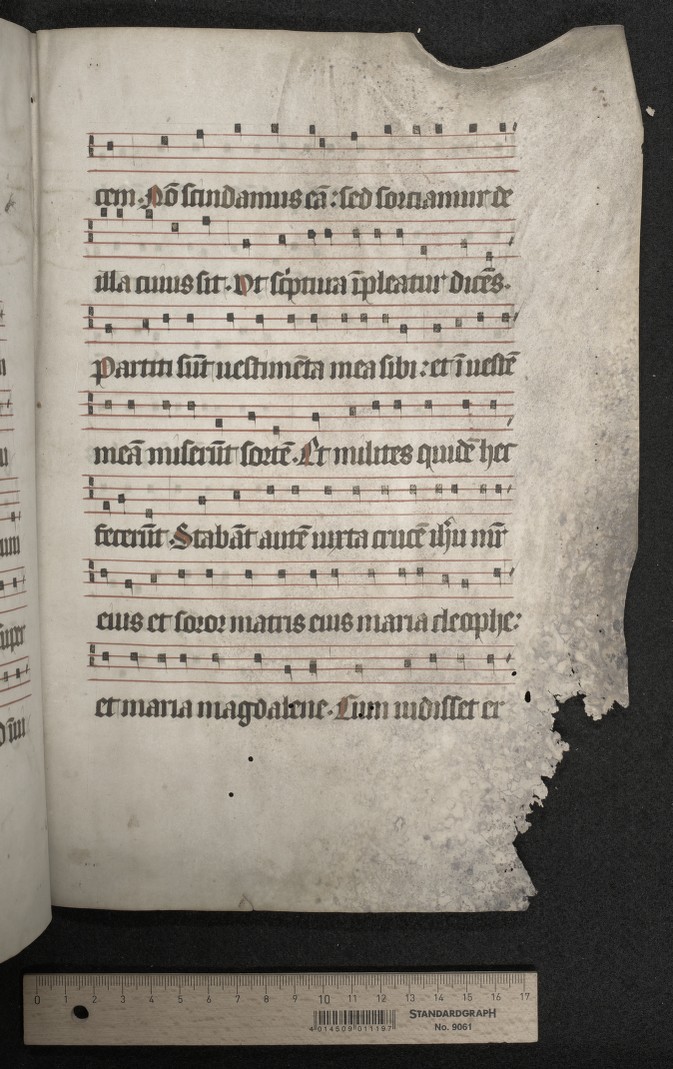 cem. Nō scindamus eā: sed sorciamur de
illa cuius sit. Vt sc̄ptura īpleatur dicēs.
Partiti sūt uestimēta mea sibi: et ī uestē
meā miserūt sortē. Et milites quidē hec
fecerūt. Stabāt autē iuxta crucē ihū mr̄
eius et soror matris eius maria cleophe:
et maria magdalene. Cum uidisset er
0 1 2 3 4 5 6 7 8 9 10 11 12 13 14 15 16 17
4 014509 011197
STANDARDGRAPH
No. 9061